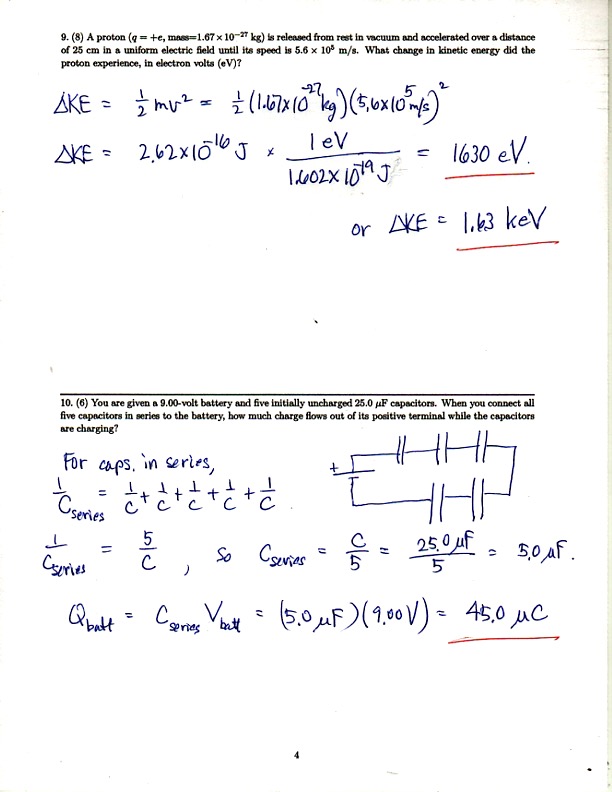 9. (8) A proton (q = +e, mass=1.67 × 10⁻²⁷ kg) is released from rest in vacuum and accelerated over a distance
of 25 cm in a uniform electric field until its speed is 5.6 × 10⁵ m/s. What change in kinetic energy did the
proton experience, in electron volts (eV)?
ΔKE = 1/2 mv² = 1/2 (1.67×10⁻²⁷ kg)(5.6×10⁵ m/s)²
ΔKE = 2.62×10⁻¹⁶ J × 1 eV / 1.602×10⁻¹⁹ J = 1630 eV.
or ΔKE = 1.63 keV
10. (6) You are given a 9.00-volt battery and five initially uncharged 25.0 μF capacitors. When you connect all
five capacitors in series to the battery, how much charge flows out of its positive terminal while the capacitors
are charging?
For caps. in series,
+
1/C series = 1/C + 1/C + 1/C + 1/C + 1/C
1/C series = 5/C , so C series = C/5 = 25.0 μF/5 = 5.0 μF.
Q batt = C series V batt = (5.0 μF)(9.00 V) = 45.0 μC
4